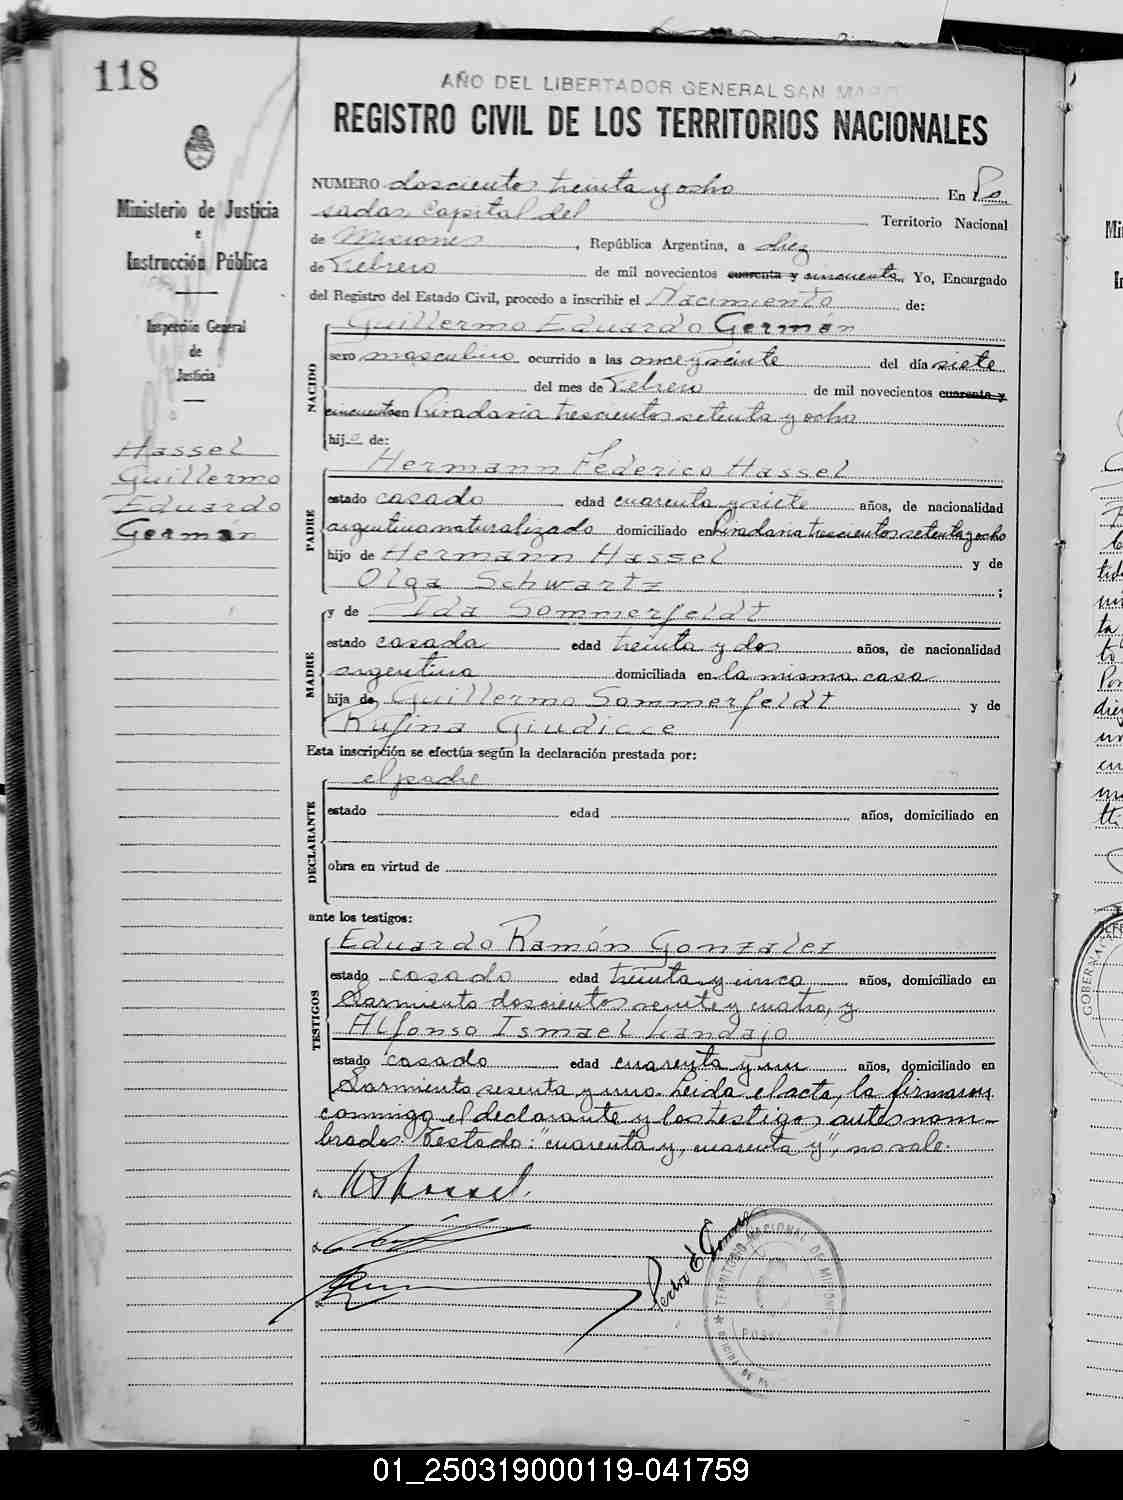 118
AÑO DEL LIBERTADOR GENERAL SAN MART
REGISTRO CIVIL DE LOS TERRITORIOS NACIONALES
Ministerio de Justicia
e
Instrucción Pública
Inspección General
de
Justicia
Hassel
Guillermo
Eduardo
Germán
NUMERO doscientos treinta y ocho En Po
sadas Capital del Territorio Nacional
de Misiones, República Argentina, a diez
de Febrero de mil novecientos cuarenta y cincuenta, Yo, Encargado
del Registro del Estado Civil, procedo a inscribir el Nacimiento de:
NACIDO
Guillermo Eduardo Germán
sexo masculino ocurrido a las once y veinte del día siete
del mes de Febrero de mil novecientos cuarenta y
cincuenta en Rivadavia trescientos setenta y ocho
hijo de:
PADRE
Hermann Federico Hassel
estado casado edad cuarenta y siete años, de nacionalidad
argentino naturalizado domiciliado en Rivadavia trescientos setenta y ocho
hijo de Hermann Hassel y de
Olga Schwartz ;
MADRE
y de Ida Sommerfeldt
estado casada edad treinta y dos años, de nacionalidad
argentina domiciliada en la misma casa
hija de Guillermo Sommerfeldt y de
Rufina Giudicce
Esta inscripción se efectúa según la declaración prestada por:
DECLARANTE
el padre
estado edad años, domiciliado en
obra en virtud de
ante los testigos:
TESTIGOS
Eduardo Ramón Gonzalez
estado casado edad treinta y cinco años, domiciliado en
Sarmiento doscientos veinte y cuatro, y
Alfonso Ismael Landajo
estado casado edad cuarenta y un años, domiciliado en
Sarmiento sesenta y uno. Leida el acta, la firmaron
conmigo el declarante y los testigos antes nom-
brados. Testado: "cuarenta y, cuarenta y", no vale.
Hassel.
Pedro E. Gomez
TERRITORIO NACIONAL DE MISIONES
01_250319000119-041759